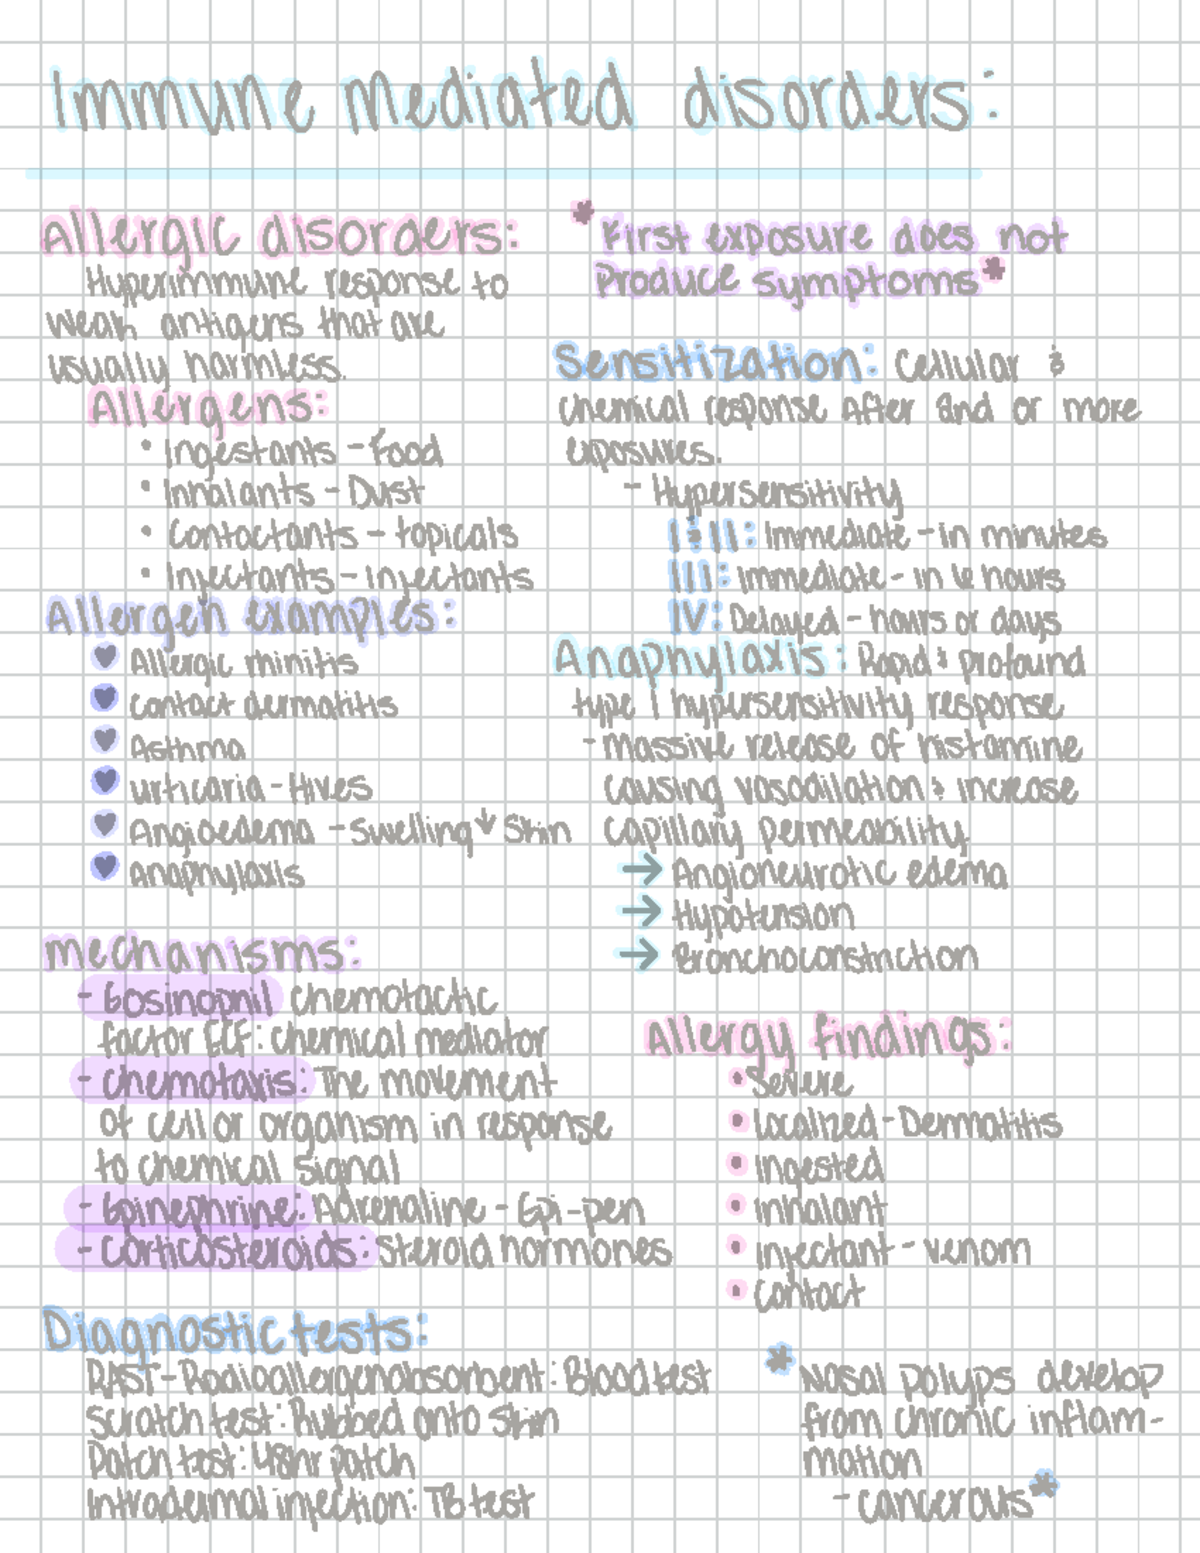 Immune mediated disorders:
Allergic disorders:
Hyperimmune response to
weak antigens that are
usually harmless.
Allergens:
• Ingestants - Food
• Inhalants - Dust
• Contactants - topicals
• Injectants - injectants
Allergen examples:
♥ Allergic rhinitis
♥ contact dermatitis
♥ Asthma
♥ urticaria - Hives
♥ Angioedema - Swelling ↓ Skin
♥ anaphylaxis
mechanisms:
- Eosinophil chemotactic
factor ECF: chemical mediator
- chemotaxis: The movement
of cell or organism in response
to chemical signal
- Epinephrine: Adrenaline - Epi-pen
- corticosteroids: Steroid hormones
Diagnostic tests:
RAST - Radioallergenabsorbent: Blood test
Scratch test: Rubbed onto skin
Patch test: 48hr patch
Intradermal injection: TB test
* First exposure does not
Produce symptoms *
Sensitization: Cellular &
chemical response After 2nd or more
exposures.
- Hypersensitivity
I & II: Immediate - in minutes
III: Immediate - in 6 hours
IV: Delayed - hours or days
Anaphylaxis: Rapid & profound
type I hypersensitivity response
- massive release of histamine
causing vasodilation & increase
capillary permeability
→ Angioneurotic edema
→ Hypotension
→ Bronchoconstriction
Allergy findings:
• Severe
• localized - Dermatitis
• ingested
• inhalant
• injectant - venom
• contact
* Nasal polyps develop
from chronic inflam-
mation
- cancerous *